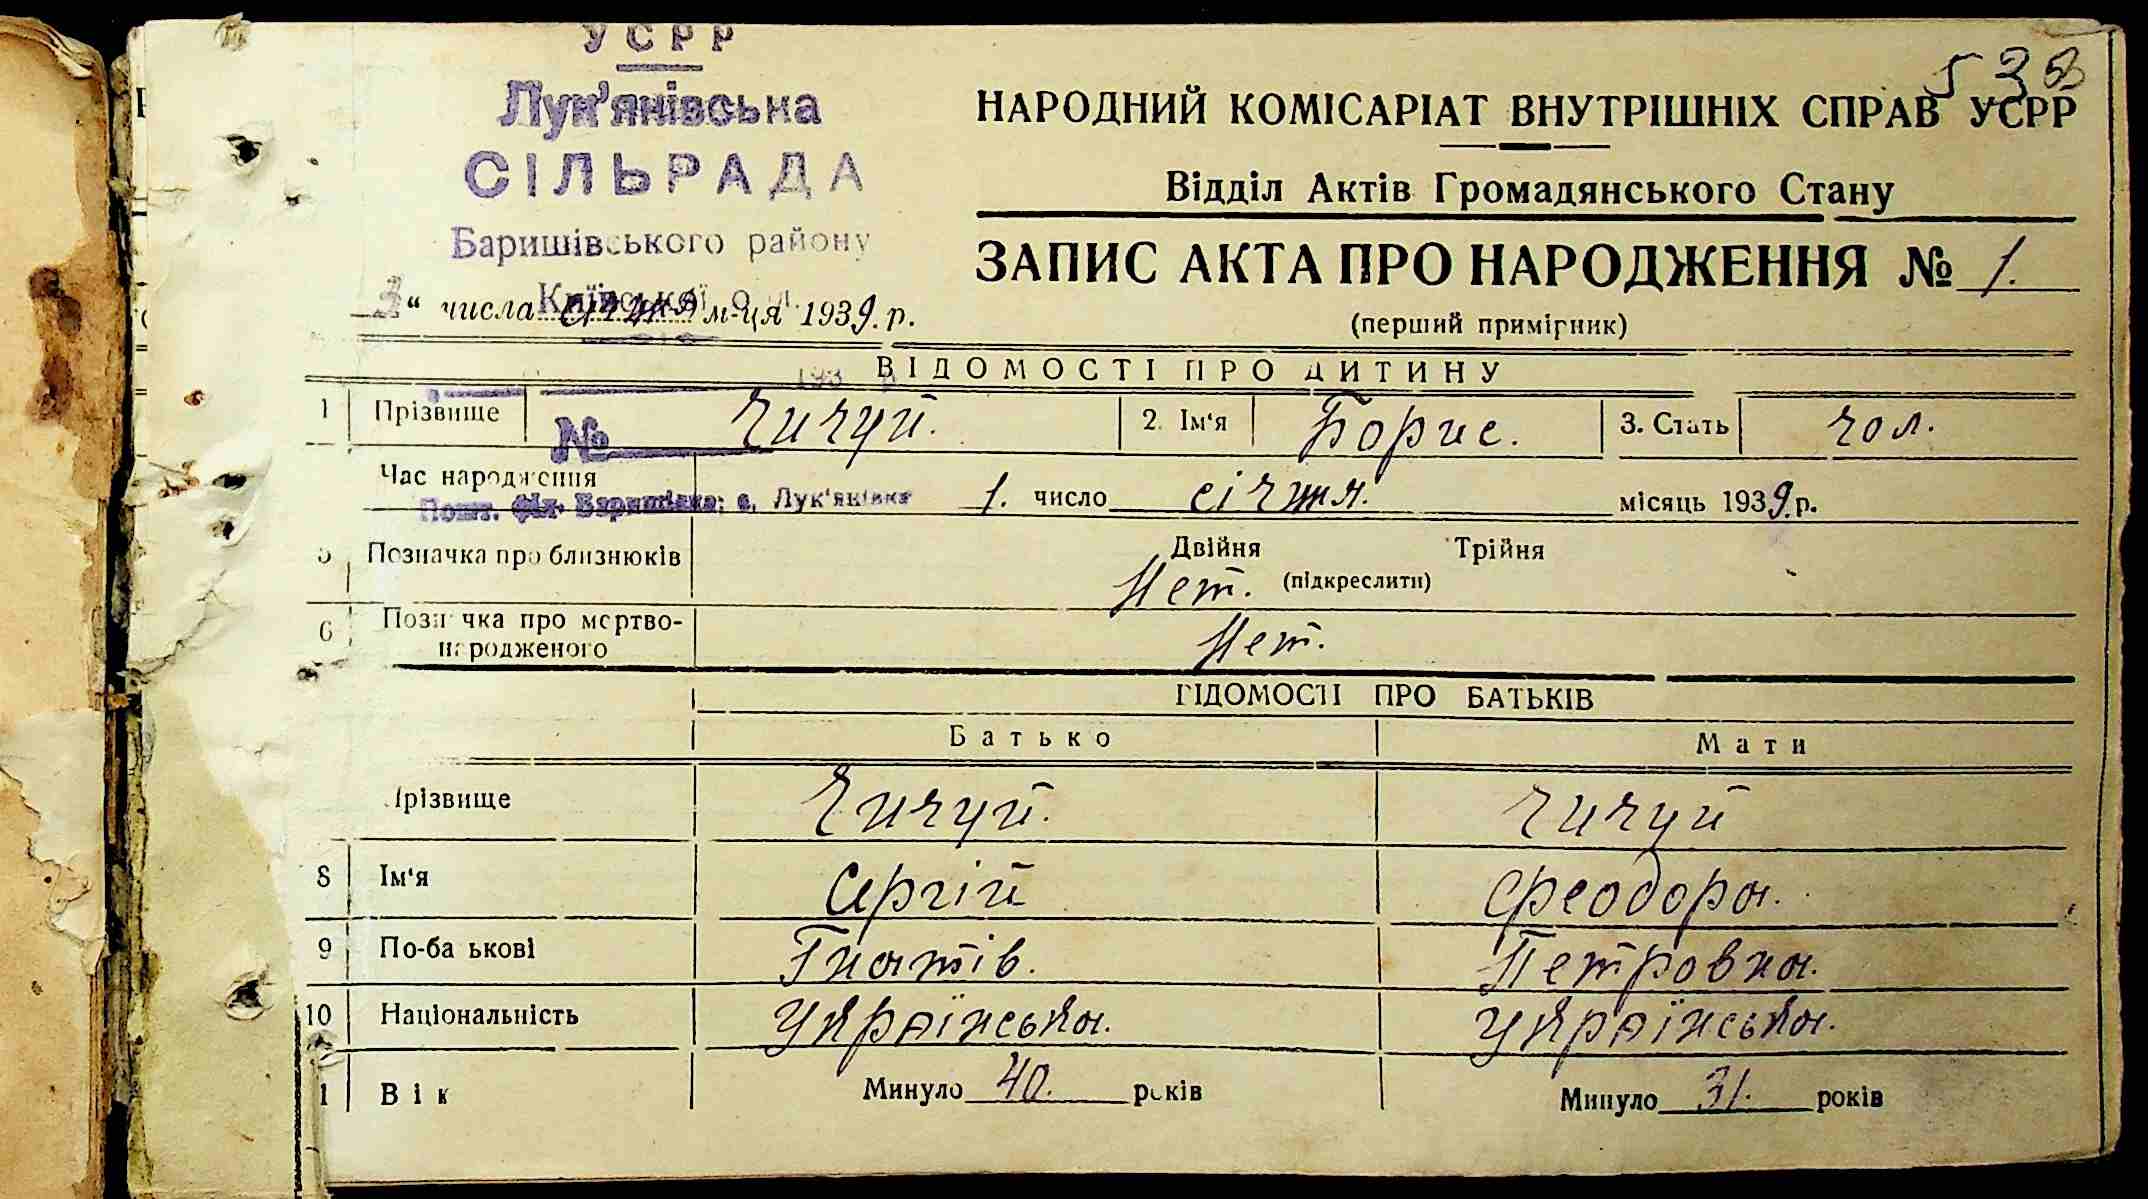 УСРР
Лук'янівська
СІЛЬРАДА
Баришівського району
Київської обл.
538
НАРОДНИЙ КОМІСАРІАТ ВНУТРІШНІХ СПРАВ УСРР
Відділ Актів Громадянського Стану
ЗАПИС АКТА ПРО НАРОДЖЕННЯ № 1.
(перший примірник)
3" числа січня м-ця 1939. р.
193
ВІДОМОСТІ ПРО ДИТИНУ
1 Прізвище Чичуй. 2. Ім'я Борис. 3. Стать чол.
№
Час народження 1. число січня. місяць 1939. р.
Пошт. філ. Баришівка; с. Лук'янівка
5 Позначка про близнюків Двійня Трійня
Нет. (підкреслити)
6 Позначка про мертво-
народженого Нет.
ВІДОМОСТІ ПРО БАТЬКІВ
Батько Мати
Прізвище Чичуй. Чичуй
8 Ім'я Сергій Феодора.
9 По-ба ькові Гнатів. Петровна.
10 Національність Українська. Українська.
1 Вік Минуло 40. років Минуло 31. років